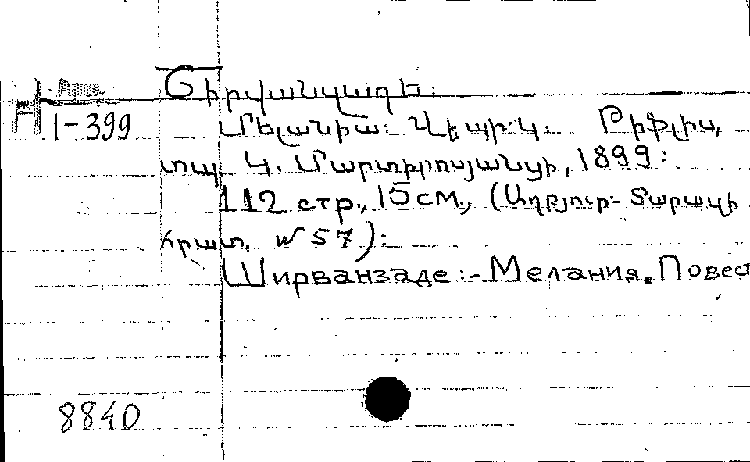 Շիրվանզադե
I-399 Մելանիա: Վէպիկ. Թիֆլիս,
տպ. Կ. Մարտիրոսյանցի, 1899:
112 стр., 15 см., (Աղբյուր-Տարազի
հրատ. N 57):
Ширванзаде:- Мелания. Повест
8840